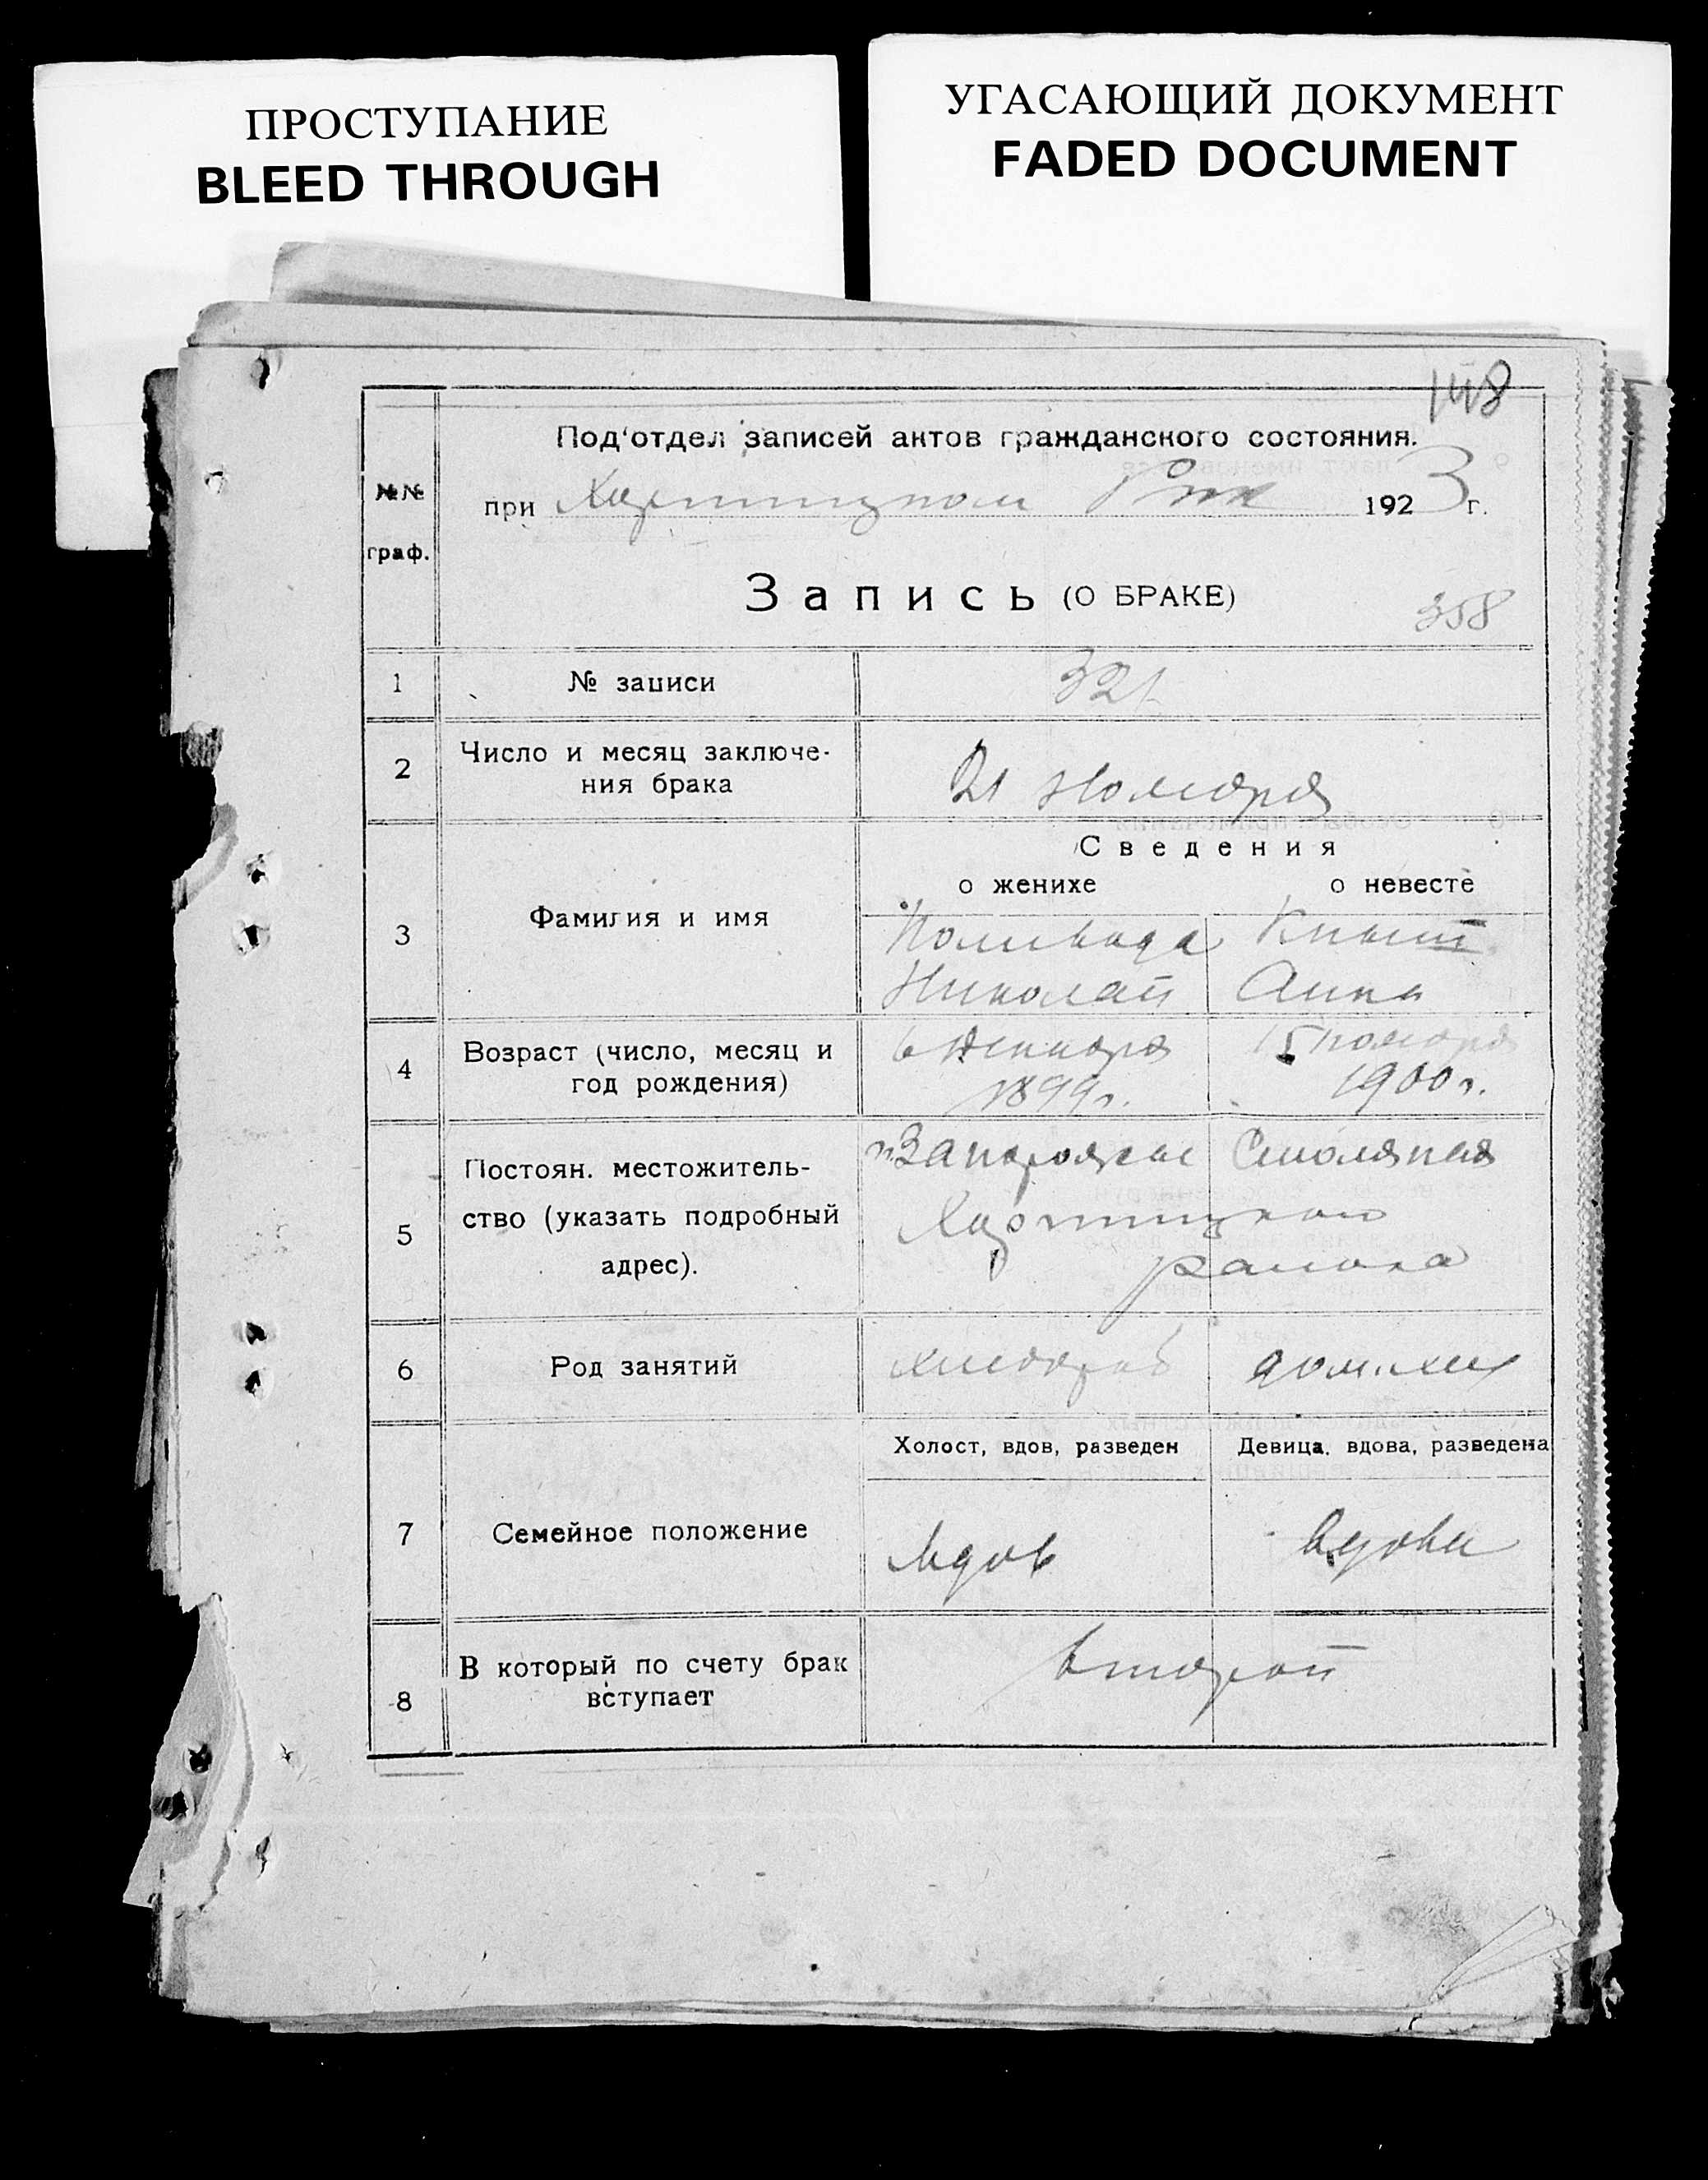 ПРОСТУПАНИЕ
BLEED THROUGH
УГАСАЮЩИЙ ДОКУМЕНТ
FADED DOCUMENT
148
№№
граф.
Под'отдел записей актов гражданского состояния.
при Хортицком Рик 1923 г.
Запись (О БРАКЕ)
358
1 № записи 321
2 Число и месяц заключе-
ния брака
21 ноября
Сведения
о женихе о невесте
3 Фамилия и имя
Поливода
Николай Анна
4 Возраст (число, месяц и
год рождения)
6 декабря 15 ноября
1899г. 1900г.
5 Постоян. местожитель-
ство (указать подробный
адрес).
Запорожье
Хортицкого
района
6 Род занятий хлебороб
Холост, вдов, разведен Девица, вдова, разведена
7 Семейное положение вдов вдова
8 В который по счету брак
вступает
второй